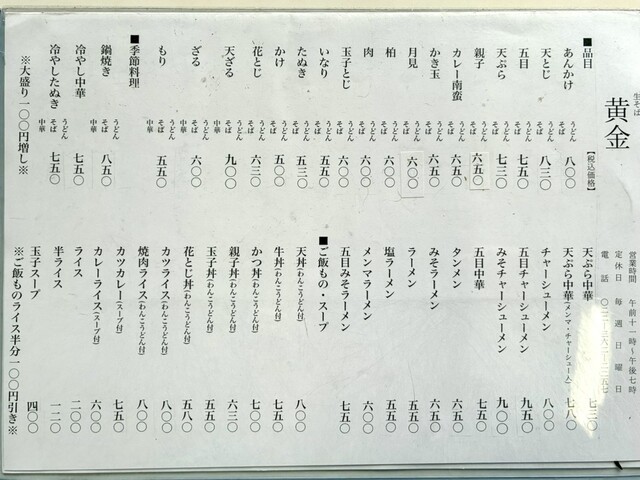 生そば
黄金
営業時間 午前十一時～午後七時
定休日 毎週日曜日
電話
■品目 【税込価格】
あんかけ うどん そば 八〇〇
天とじ うどん そば 八三〇
五目 うどん そば 七五〇
天ぷら うどん そば 七三〇
親子 うどん そば 六五〇
カレー南蛮 うどん そば 六五〇
かき玉 うどん そば 六五〇
月見 うどん そば 六〇〇
柏 うどん そば 六〇〇
肉 うどん そば 六〇〇
玉子とじ うどん そば 六〇〇
いなり うどん そば 五五〇
たぬき うどん そば 五三〇
かけ うどん そば 五〇〇
花とじ うどん そば 六三〇
天ざる うどん そば 中華 九〇〇
ざる うどん そば 中華 六〇〇
もり うどん そば 中華 五五〇
■季節料理
鍋焼き うどん そば 中華 八五〇
冷やし中華 七五〇
冷やしたぬき うどん そば 中華 七五〇
※大盛り一〇〇円増し※
天ぷら中華 七三〇
天ぷら中華(メンマ・チャーシュー入) 七八〇
チャーシューメン 八〇〇
五目チャーシューメン 九〇〇
みそチャーシューメン 九〇〇
五目中華 七五〇
タンメン 六五〇
みそラーメン 六五〇
ラーメン 五五〇
塩ラーメン 五五〇
メンマラーメン 六〇〇
五目みそラーメン 七五〇
■ご飯もの・スープ
天丼(わんこうどん付) 八〇〇
牛丼(わんこうどん付) 七五〇
かつ丼(わんこうどん付) 七〇〇
親子丼(わんこうどん付) 六三〇
玉子丼(わんこうどん付) 五五〇
花とじ丼(わんこうどん付) 五八〇
カツライス(わんこうどん付) 八〇〇
焼肉ライス(わんこうどん付) 八〇〇
カツカレー(スープ付) 七五〇
カレーライス(スープ付) 六〇〇
ライス 二〇〇
半ライス 一二〇
玉子スープ 四〇〇
※ご飯ものライス半分一〇〇円引き※